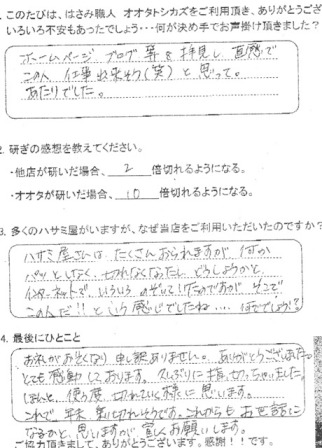 . このたびは、はさみ職人 オオタトシカズをご利用頂き、ありがとうござ
いろいろ不安もあったでしょう・・・何が決め手でお声掛け頂きましたか?
ホームページ ブログ 等を拝見し 直感で
この人 仕事出来そう(笑)と思って。
あたりでした。
2. 研ぎの感想を教えてください。
・他店が研いだ場合、 2 倍切れるようになる。
・オオタが研いだ場合、 10 倍切れるようになる。
3. 多くのハサミ屋がいますが、なぜ当店をご利用いただいたのですか?
ハサミ屋さんは たくさんおられますが 何か
パッとしなく、切れなくなったし どうしようかと
インターネットで、いろいろ のぞいていたのですが そこで
この人だ!! という感じでしたね… なぜでしょう?
4. 最後にひとこと
お礼がおそくなり 申し訳ありません。ありがとうございました
とても感動しております。久しぶりに指、切っちゃいました。
ほんと、
切れていく様に思います。
これで 年末 乗り切れそうです。これからも お世話に
なるかと 思いますが 宜しくお願いします。
ご協力頂きまして、ありがとうございます。感謝!!です。